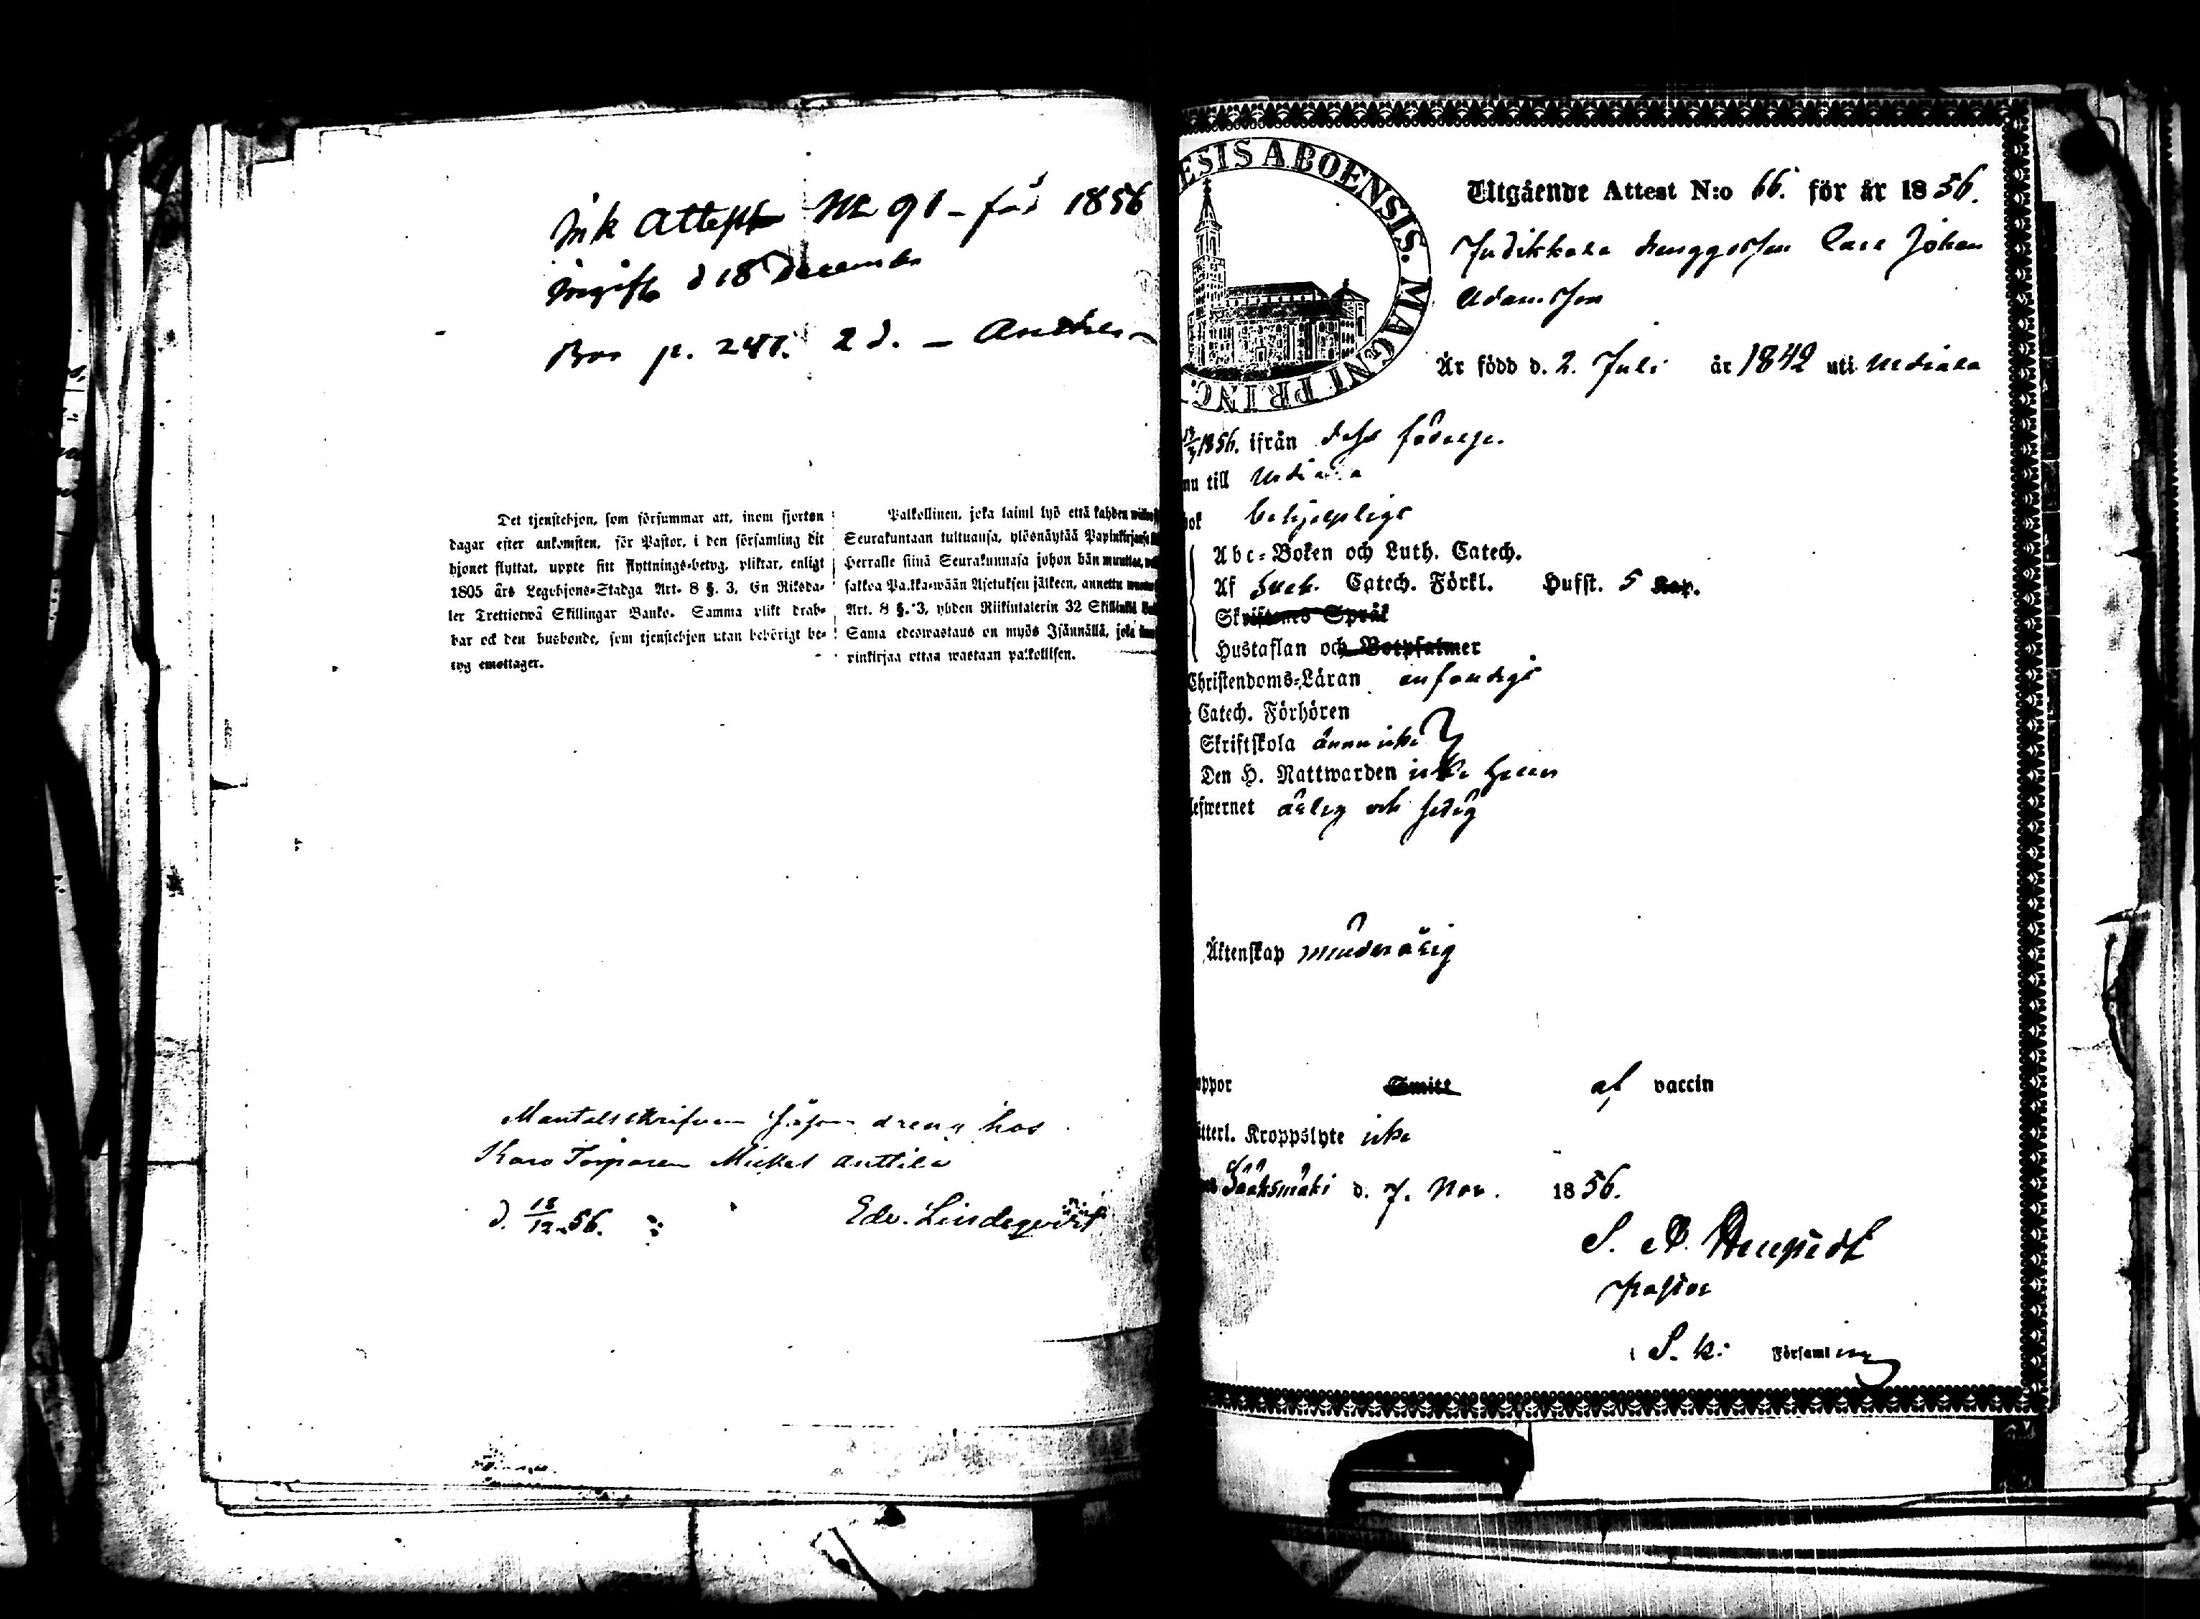 Ink Attest No 91 för 1856
ingift d 18 December
Bor p. 247. 2 d. –
Det tjenstehjon, som försummar att, inom fjorton
dagar efter ankomsten, för Pastor, i den församling dit
hjonet flyttat, uppte sitt flyttnings-betyg, pliktar, enligt
1805 års Legohjons-Stadga Art. 8 §. 3, En Riksda-
ler Trettiotwå Skillingar Banko. Samma plikt drab-
bar ock den husbonde, som tjenstehjon utan behörigt be-
tyg emottager.
Palkollinen, joka laimi lyö että kahden
Seurakuntaan tultuansa, ylösnäytää Papinkirjansa
Herralle siinä Seurakunnasa johon hän muuttaa,
sakkoa Palkka-wään Asetuksen jälkeen, annettu
Art. 8 §. 3, yhden Riikintalerin 32 Skillinkiä
Sama edeswastaus on myös Isännällä, joka
pinkirjaa ottaa wastaan palkollisen.
Mantalsskrifven såsom dreng hos
Karo Torparen Mickel Anttila
d. 18/12 56.
Edv. Lindeqvist
ESIS ABOENSIS. MAGNI PRINC.
Utgående Attest N:o 66. för år 1856.
Carl Johan
Adamsson
Är född d. 2. Juli år 1842 uti Urdiala
1856. ifrån dess födelse.
nu till Urdiala
bok behjelpligt
Abc-Boken och Luth. Catech.
Af Sveb. Catech. Förkl. Husst. 5 Kap.
Skriftenes Språk
Hustaflan och Botpsalmer
Christendoms-Läran enfaldigt
Catech. Förhören
Skriftskola ännu icke
Den H. Nattwarden icke heller
lefwernet ärlig och sedig
Äktenskap minderårig
oppor Smitt af vaccin
tterl. Kroppslyte icke
Sääksmäki d. 7. Nov. 1856.
Pastor
i S. ki Församling